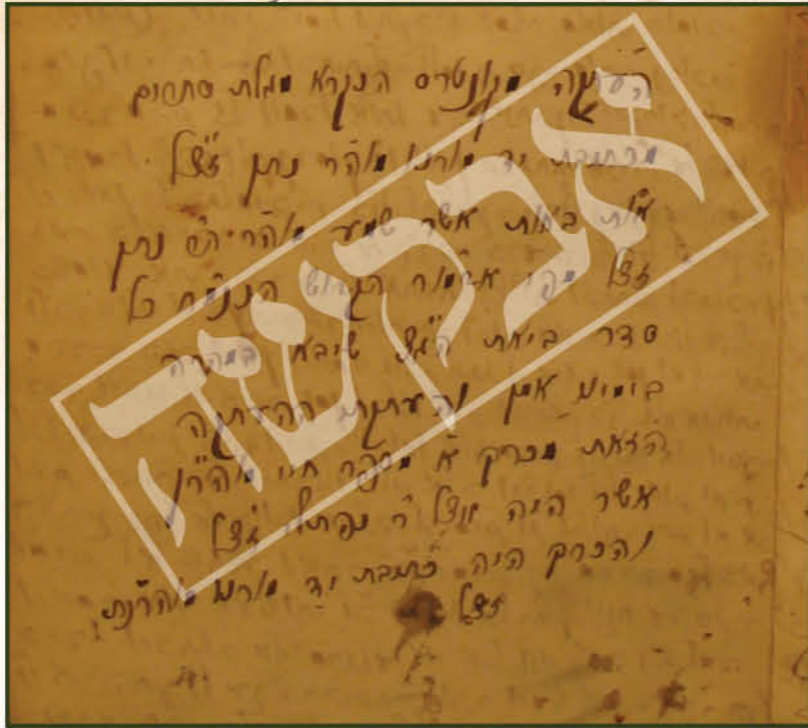 העתקה מקונטרס הנקרא מגלת סתרים
מכתיבת יד מורנו מוהר נתן זצ"ל
אות באות אשר שמע נתן
זצ"ל מפי אדמו"ר הקדוש כל
סדר ביאת הג"צ שיבא במהרה
בימינו אמן והעתקתי ההעתקה
הזאת מכרך א' מספר חיי מוהר"ן
אשר היה אצל ר' נפתלי זצ"ל
והכרך היה כתיבת יד מורנו מוהרנ"ת
זצ"ל
אבקשה